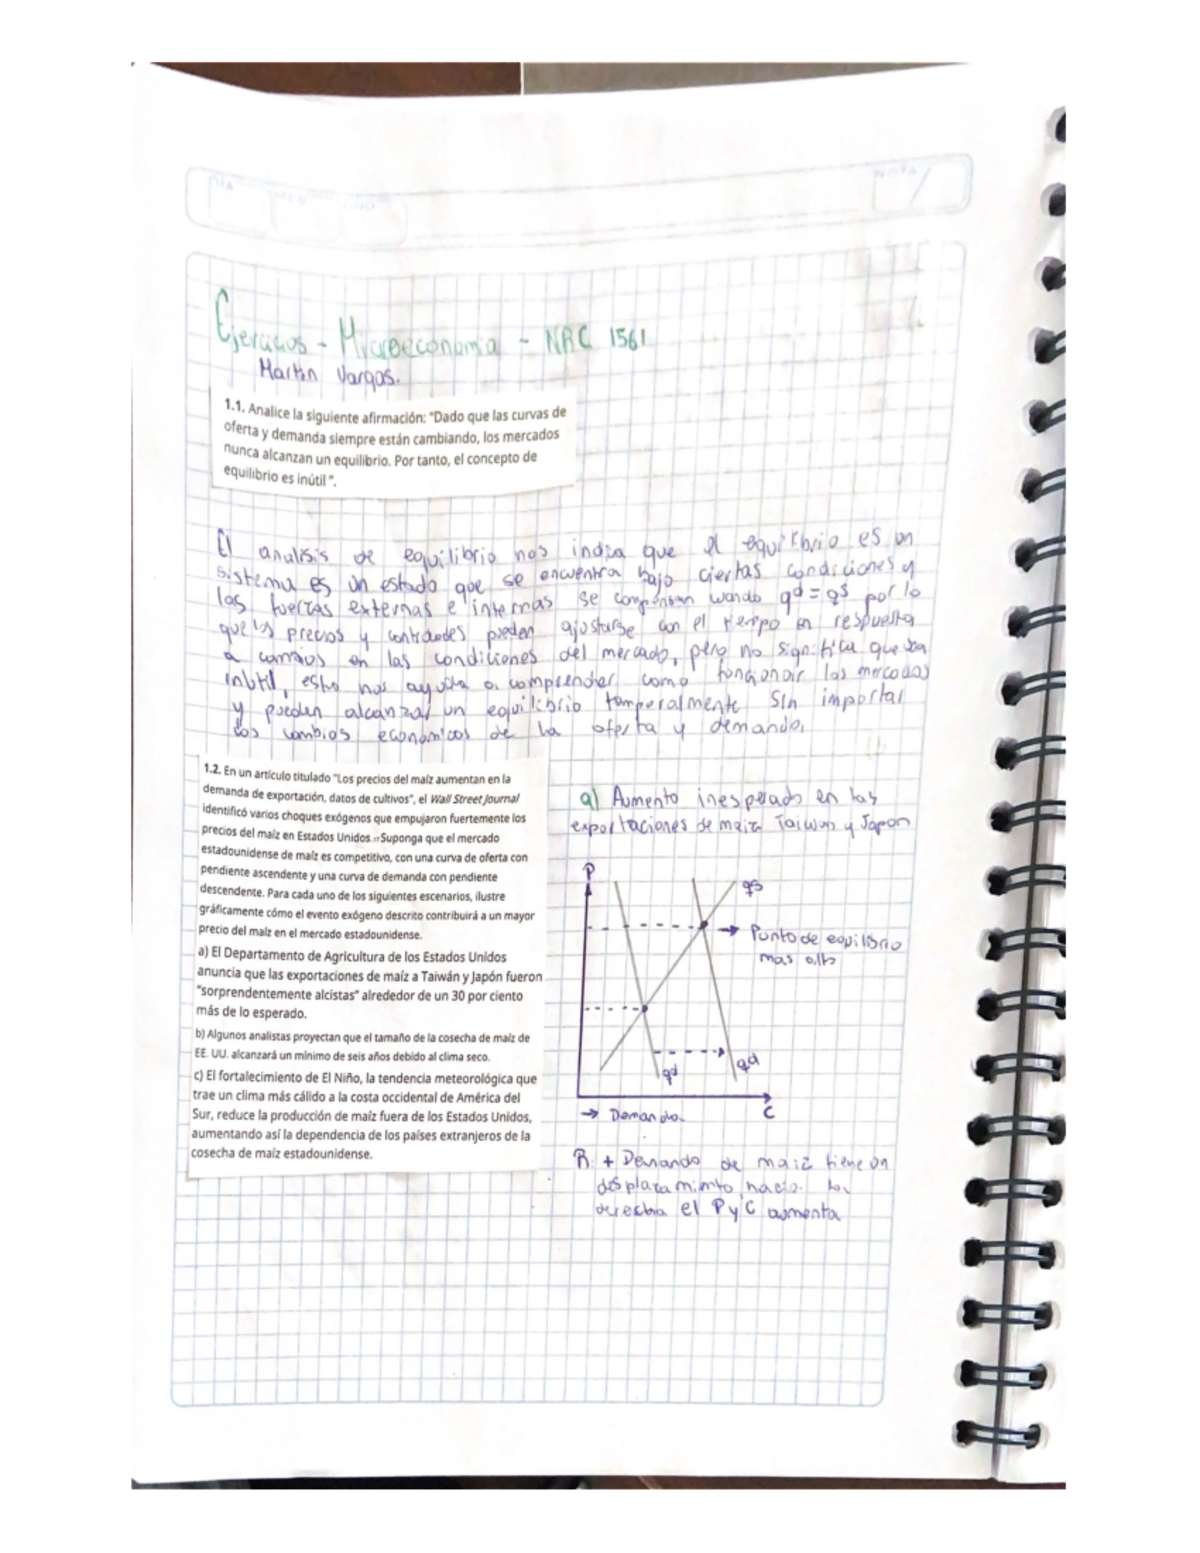 DIA
MES
AÑO
NOTA
Ejercicios - Microeconomia - NRC 1561
Martin Vargas.
1.1. Analice la siguiente afirmación: "Dado que las curvas de
oferta y demanda siempre están cambiando, los mercados
nunca alcanzan un equilibrio. Por tanto, el concepto de
equilibrio es inútil ".
El analisis de equilibrio nos indica que el equilibrio es un
sistema es un estado que se encuentra bajo ciertas condiciones y
las fuerzas externas e internas se compensan cuando qd = qs por lo
que los precios y cantidades pueden ajustarse con el tiempo en respuesta
a cambios en las condiciones del mercado, pero no significa que sea
inutil, esto nos ayuda a comprender como funcionar los mercados
y pueden alcanzar un equilibrio temporalmente sin importar
los cambios economicos de la oferta y demanda.
1.2. En un artículo titulado "Los precios del maíz aumentan en la
demanda de exportación, datos de cultivos", el Wall Street Journal
identificó varios choques exógenos que empujaron fuertemente los
precios del maíz en Estados Unidos. Suponga que el mercado
estadounidense de maíz es competitivo, con una curva de oferta con
pendiente ascendente y una curva de demanda con pendiente
descendente. Para cada uno de los siguientes escenarios, ilustre
gráficamente cómo el evento exógeno descrito contribuirá a un mayor
precio del maíz en el mercado estadounidense.
a) El Departamento de Agricultura de los Estados Unidos
anuncia que las exportaciones de maíz a Taiwán y Japón fueron
"sorprendentemente alcistas" alrededor de un 30 por ciento
más de lo esperado.
b) Algunos analistas proyectan que el tamaño de la cosecha de maíz de
EE. UU. alcanzará un mínimo de seis años debido al clima seco.
c) El fortalecimiento de El Niño, la tendencia meteorológica que
trae un clima más cálido a la costa occidental de América del
Sur, reduce la producción de maíz fuera de los Estados Unidos,
aumentando así la dependencia de los países extranjeros de la
cosecha de maíz estadounidense.
a) Aumento inesperado en las
exportaciones de maiz Taiwan y Japon
P
qs
→ Punto de equilibrio
mas alto
qd
qd
C
→ Demanda.
R: + Demanda de maiz tiene un
desplazamiento hacia la
derecha el P y C aumenta